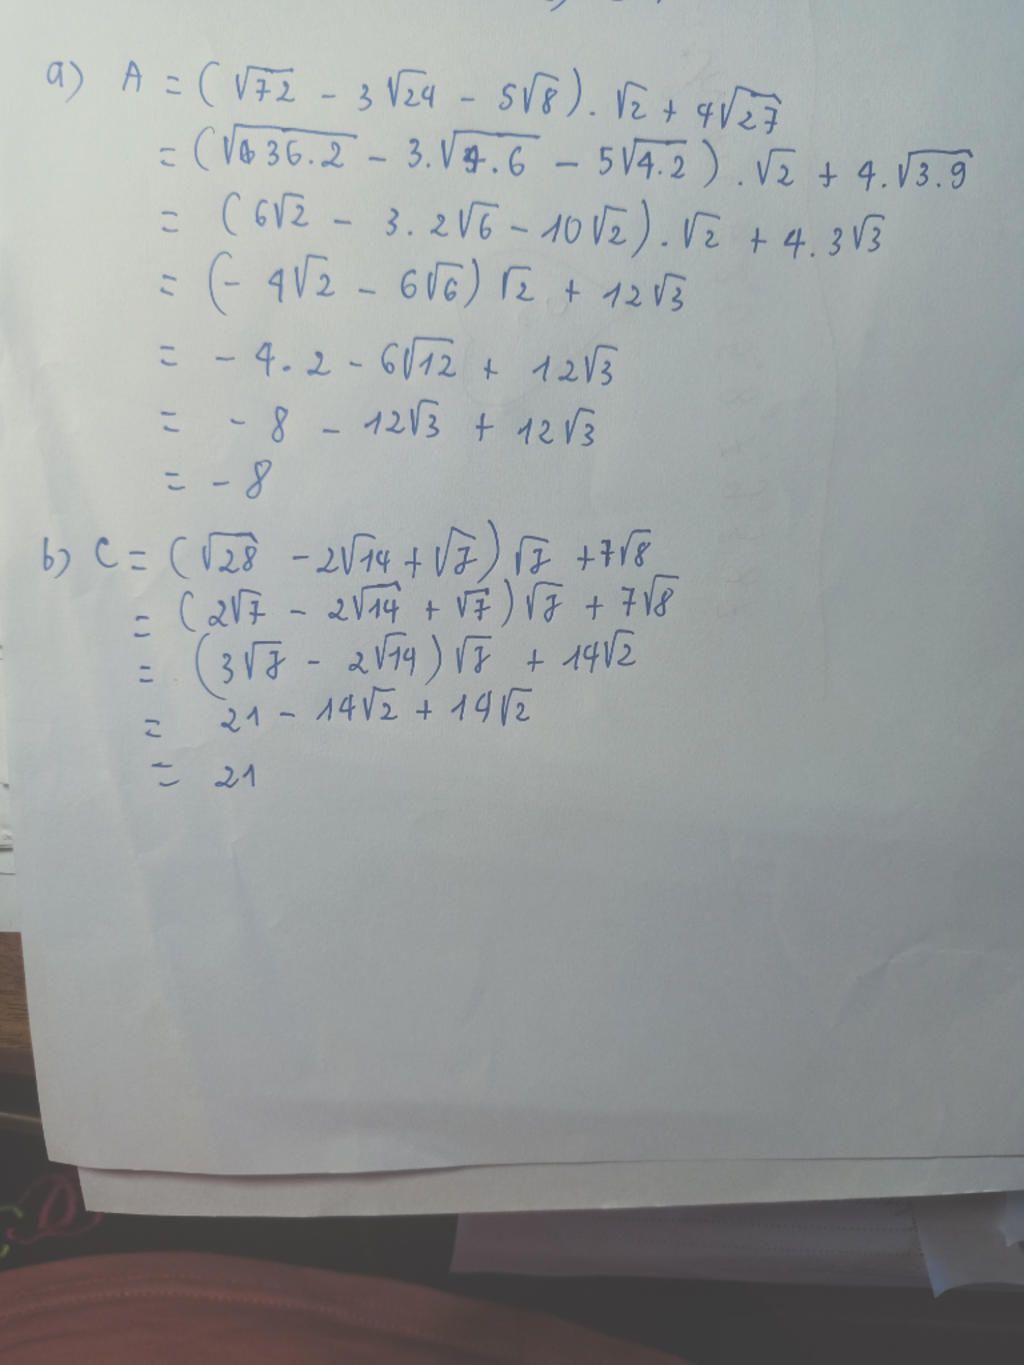 a) A = (√72 - 3√24 - 5√8).√2 + 4√27
= (√36.2 - 3.√4.6 - 5√4.2).√2 + 4.√3.9
= (6√2 - 3.2√6 - 10√2).√2 + 4.3√3
= (-4√2 - 6√6)√2 + 12√3
= -4.2 - 6√12 + 12√3
= -8 - 12√3 + 12√3
= -8
b) C = (√28 - 2√14 + √7)√7 + 7√8
= (2√7 - 2√14 + √7)√7 + 7√8
= (3√7 - 2√14)√7 + 14√2
= 21 - 14√2 + 14√2
= 21